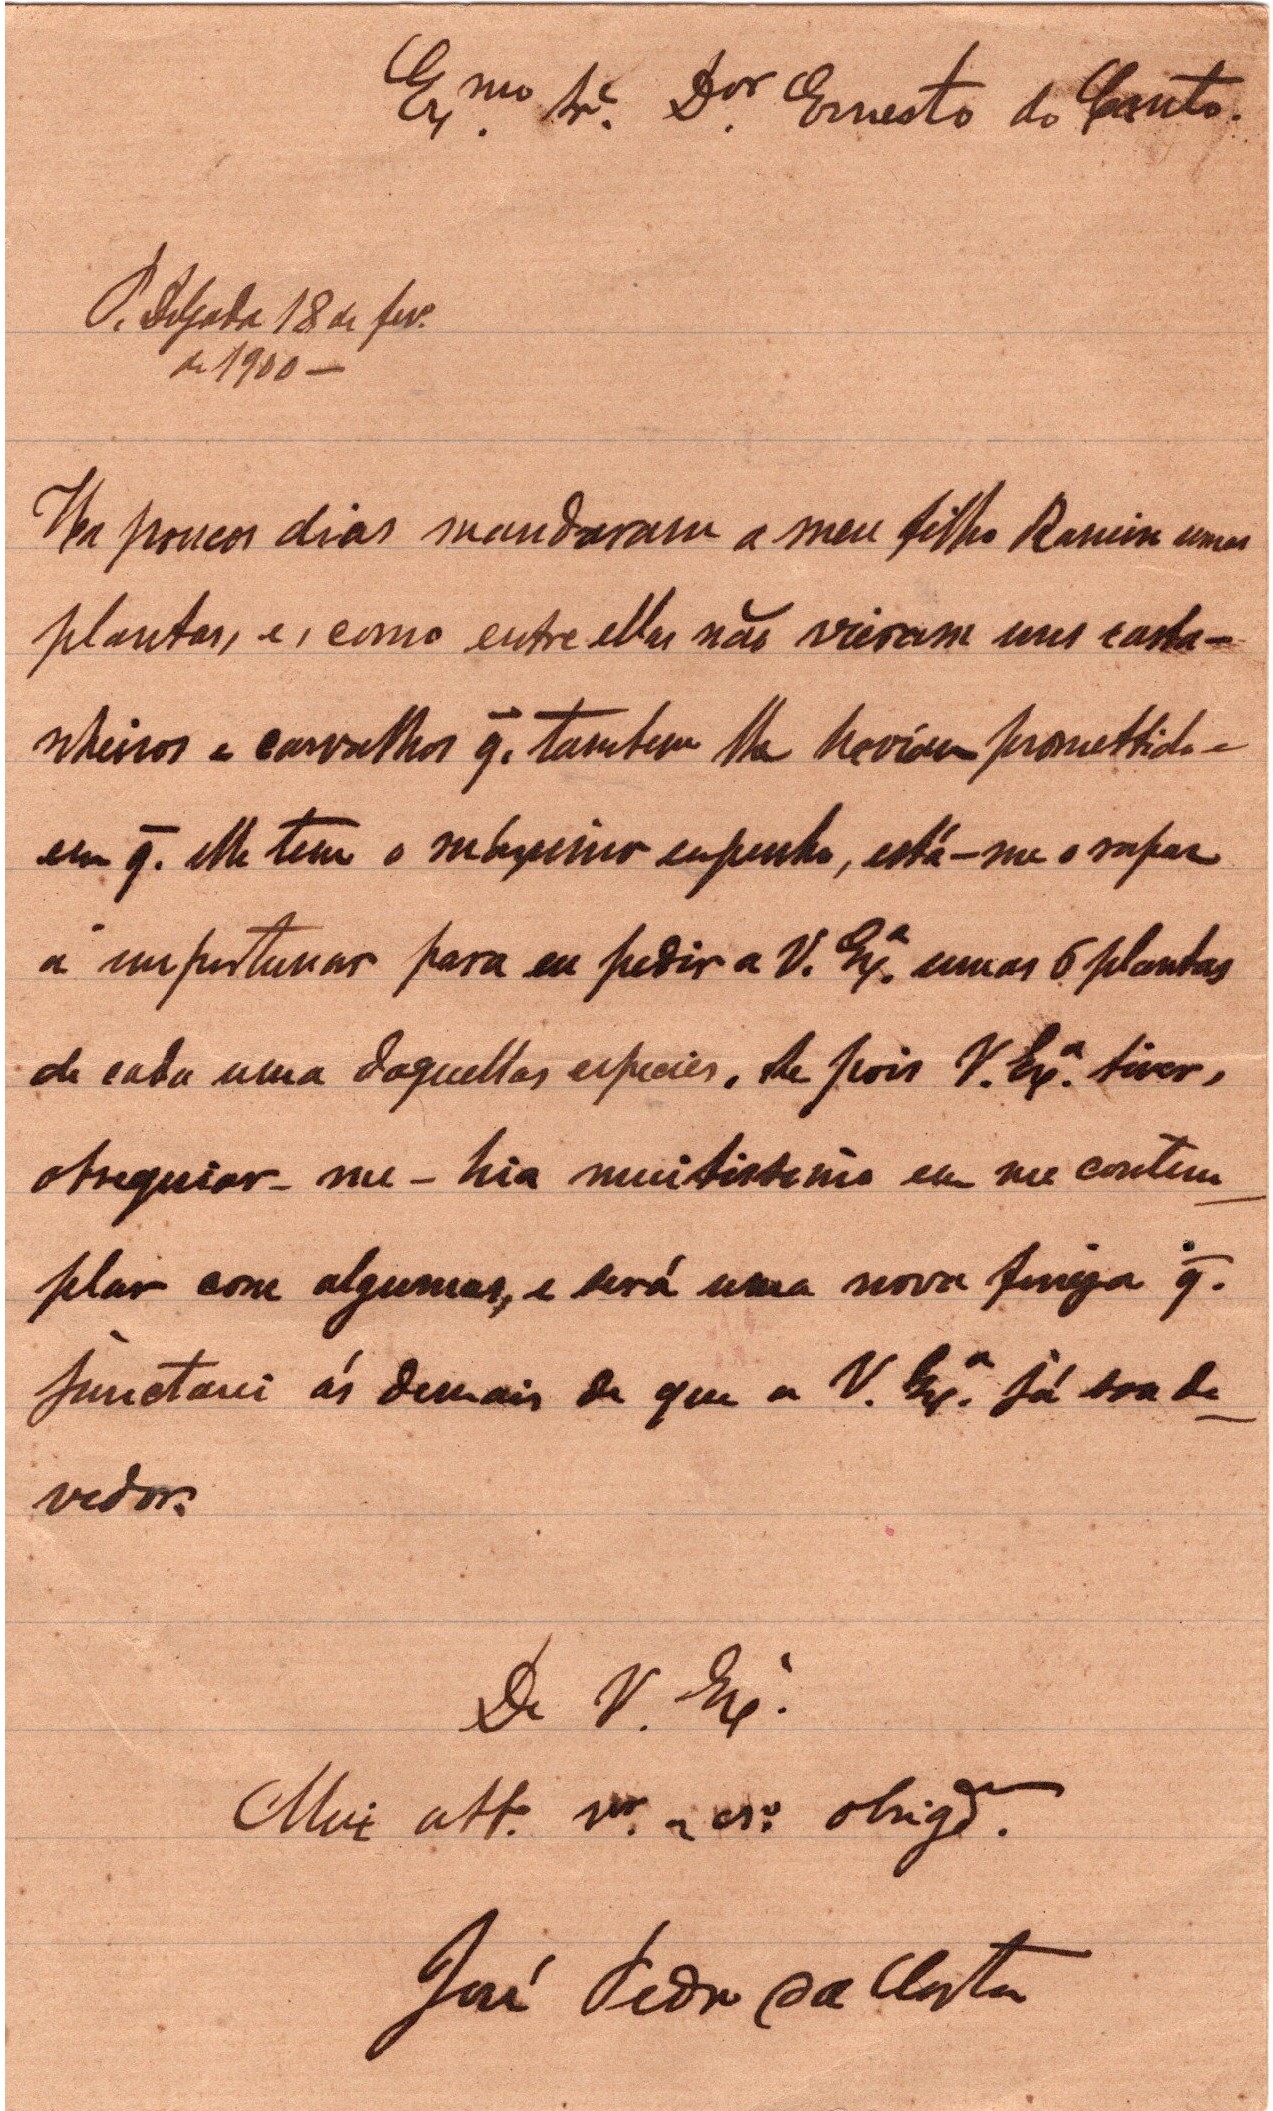 Ex.mo Sr. D.or Ernesto do Canto.
P. Delgada 18 de fev.
de 1900 —
Ha poucos dias mandaram a meu filho Ramiro umas
plantas, e, como entre ellas não vieram uns casta-
nheiros e carvalhos q. tambem lhe haviam promettido e
em q. elle tem o máximo empenho, está-me o rapaz
a importunar para eu pedir a V. Ex.a umas 6 plantas
de cada uma daquellas especies. Se pois V. Ex.a tiver,
obsequiar-me-hia muitissimo em me contem
plar com algumas, e será uma nova fineza q.
junctarei ás demais de que a V. Ex.a já sou de
vedor.
De V. Ex.a
Mui att. v.or e cr.o obrigd.o
José Pedro da Costa